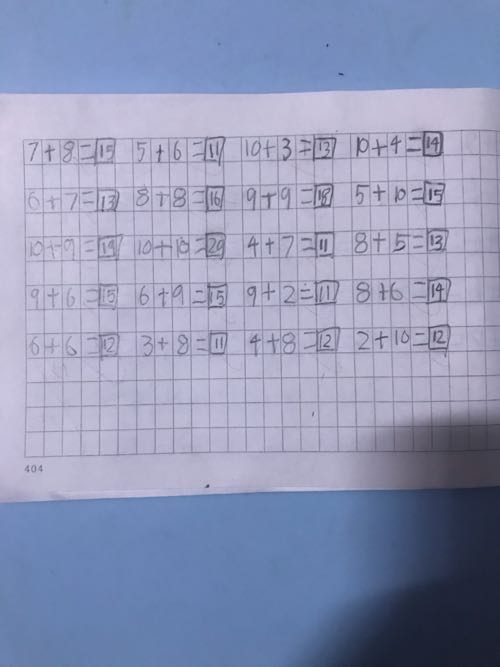 7+8=15 5+6=11 10+3=13 10+4=14
6+7=13 8+8=16 9+9=18 5+10=15
10+9=19 10+10=20 4+7=11 8+5=13
9+6=15 6+9=15 9+2=11 8+6=14
6+6=12 3+8=11 4+8=12 2+10=12
404